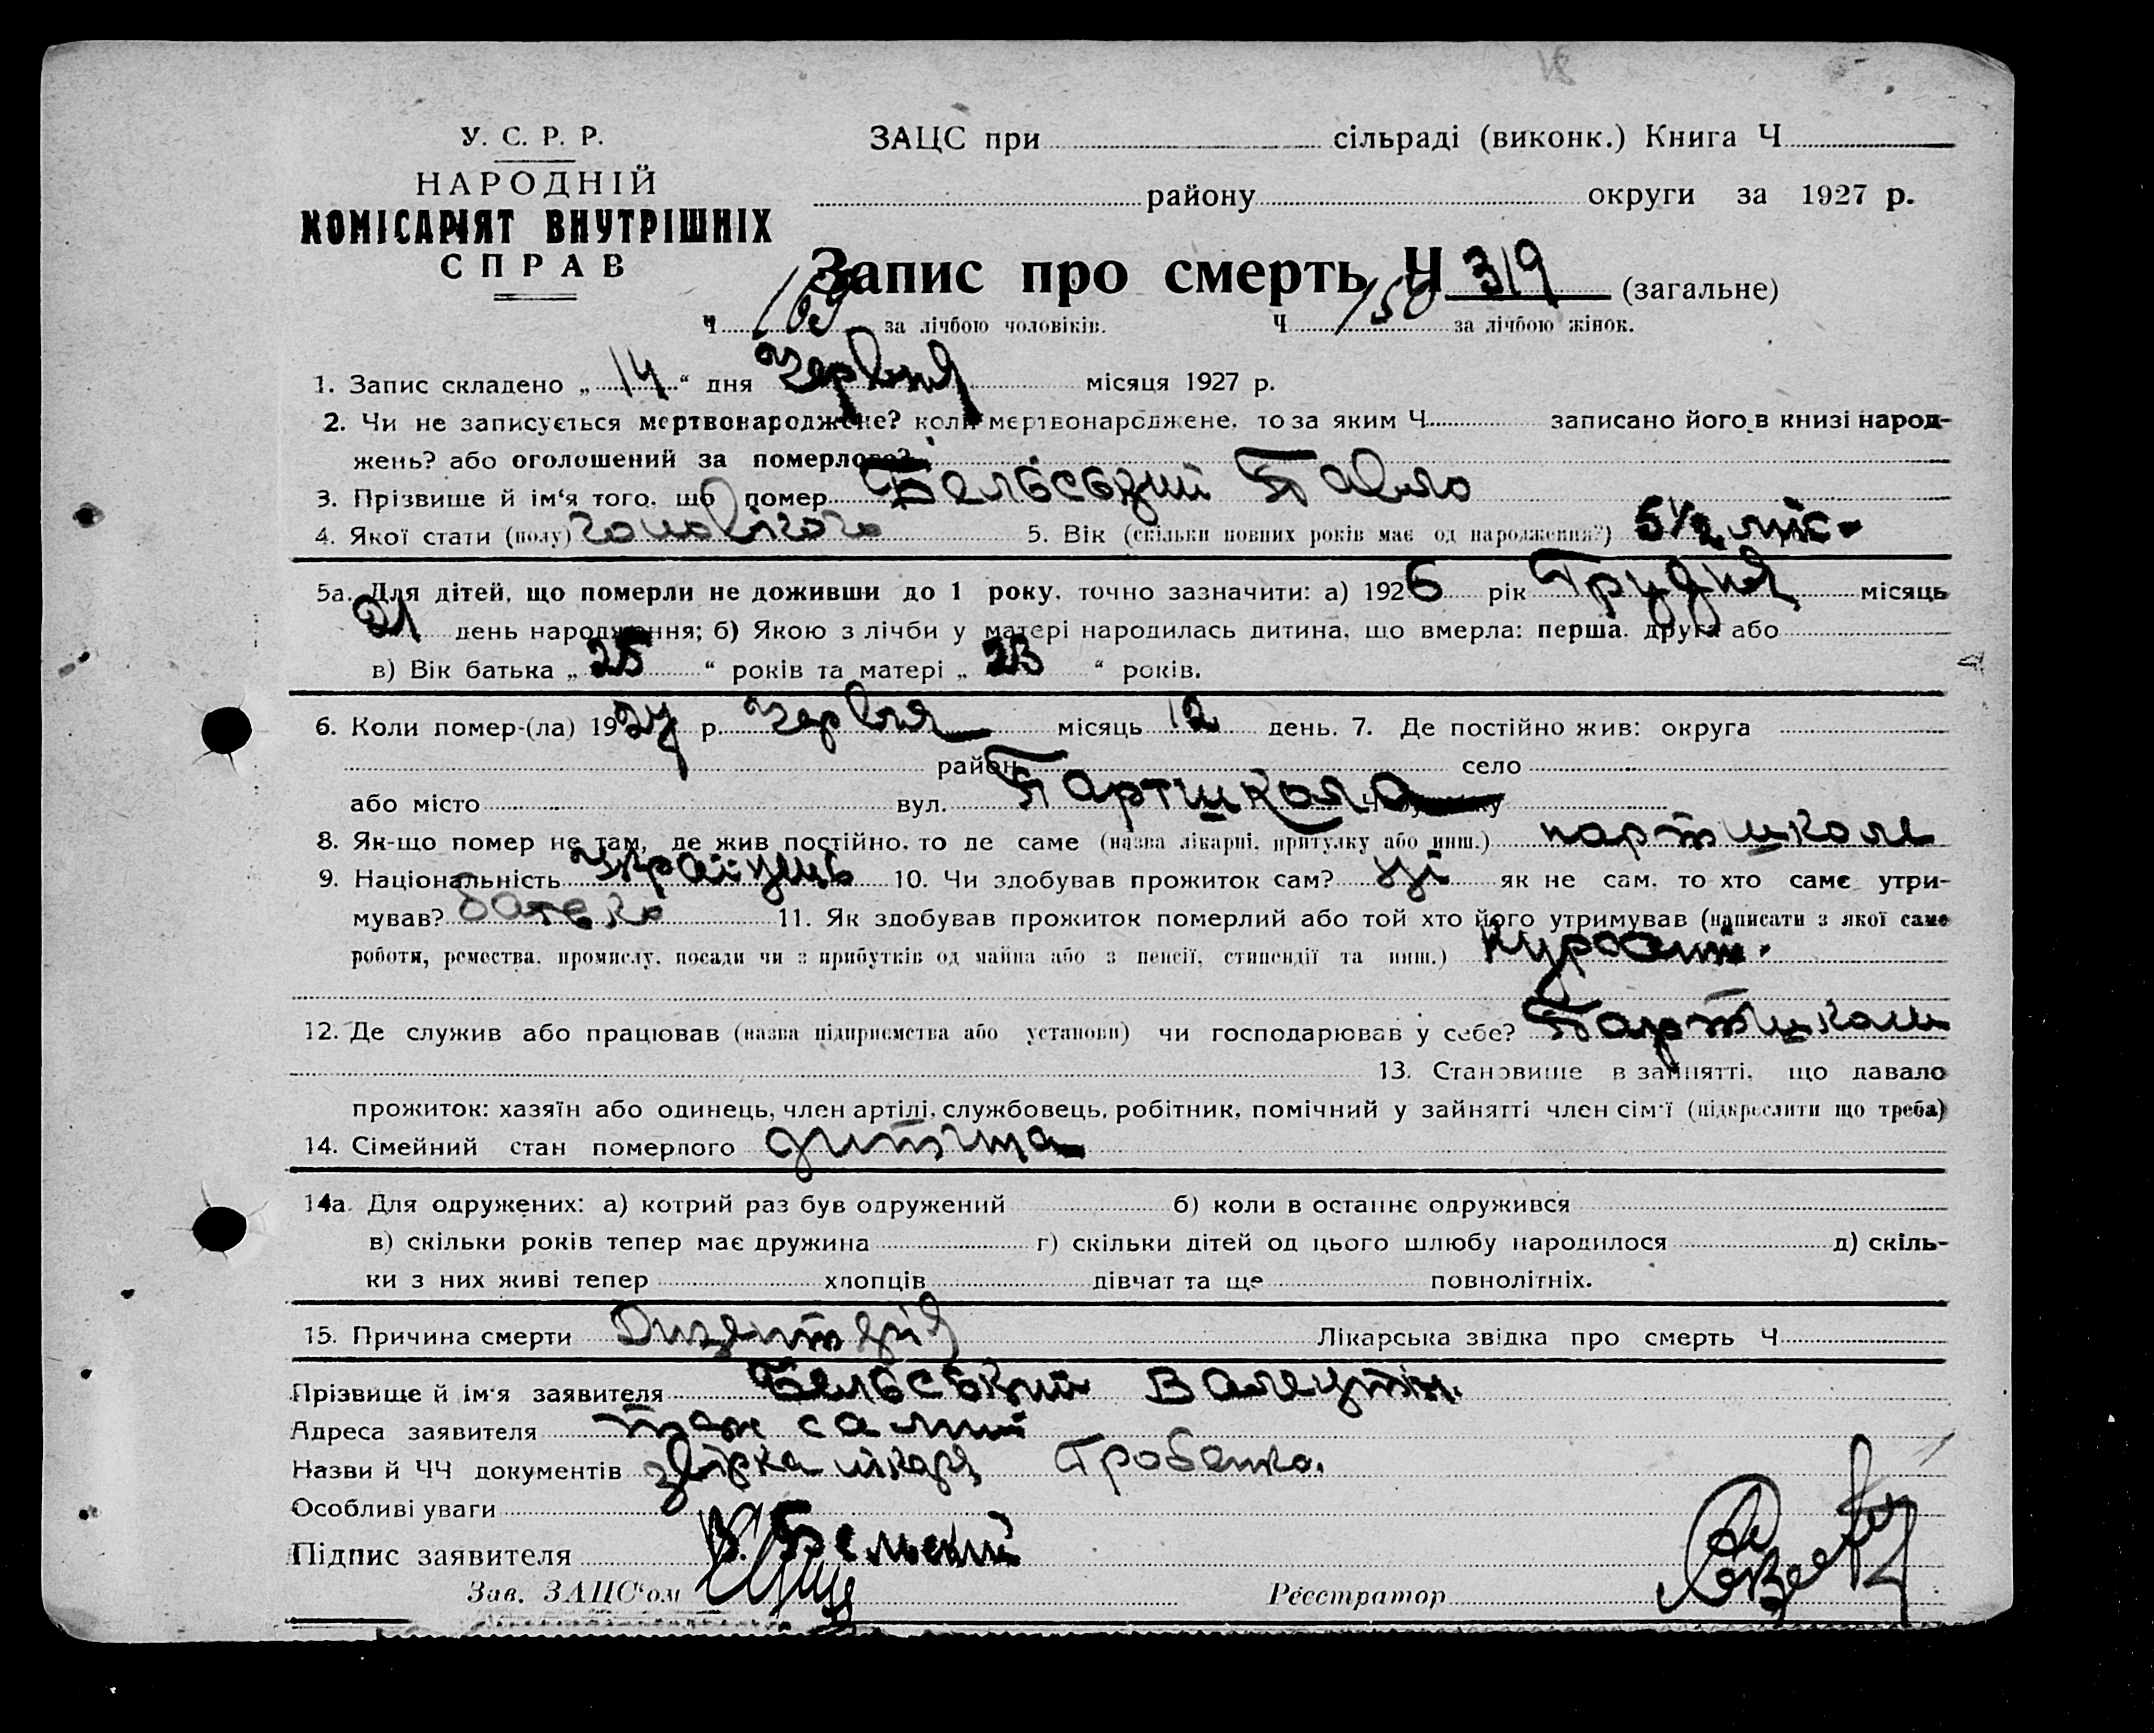 У. С. Р. Р.
НАРОДНІЙ
КОМІСАРІЯТ ВНУТРІШНІХ
СПРАВ
ЗАЦС при сільраді (виконк.) Книга Ч
району округи за 1927 р.
Запис про смерть Ч 319 (загальне)
Ч 169 за лічбою чоловіків. Ч 150 за лічбою жінок.
1. Запис складено „ 14 “ дня Червня місяця 1927 р.
2. Чи не записується мертвонароджене? коли мертвонароджене, то за яким Ч записано його в книзі народ-
жень? або оголошений за померлого?
3. Прізвище й ім'я того, що помер Бельський Павло
4. Якої стати (полу) чоловічого 5. Вік (скільки повних років має од народження?) 5½ міс.
5а. Для дітей, що померли не доживши до 1 року, точно зазначити: а) 1926 рік Грудня місяць
21 день народження; б) Якою з лічби у матері народилась дитина, що вмерла: перша, друга або
в) Вік батька „ 25 “ років та матері „ 23 “ років.
6. Коли помер-(ла) 1927 р. червня місяць 12 день. 7. Де постійно жив: округа
район село
або місто вул. Партшкола
8. Як-що помер не там, де жив постійно, то де саме (назва лікарні, притулку або инш.) партшколі
9. Національність Українець 10. Чи здобував прожиток сам? ні як не сам, то хто саме утри-
мував? батько 11. Як здобував прожиток померлий або той хто його утримував (написати з якої саме
роботи, ремества, промислу, посади чи з прибутків од майна або з пенсії, стипендії та инш.) Курсант.
12. Де служив або працював (назва підприємства або установи) чи господарював у себе? Партшколи
13. Становище в зайнятті, що давало
прожиток: хазяїн або одинець, член артілі, службовець, робітник, помічний у зайнятті член сім'ї (підкреслити що треба)
14. Сімейний стан померлого дитина
14а. Для одружених: а) котрий раз був одружений б) коли в останнє одружився
в) скільки років тепер має дружина г) скільки дітей од цього шлюбу народилося д) скіль-
ки з них живі тепер хлопців дівчат та ще повнолітніх.
15. Причина смерти Дизентерія Лікарська звідка про смерть Ч
Прізвище й ім'я заявителя Бельський Валентін.
Адреса заявителя там самий
Назви й ЧЧ документів звідка лікаря Гробенка.
Особливі уваги
Підпис заявителя В. Бельский
Зав. ЗАЦС'ом Реєстратор